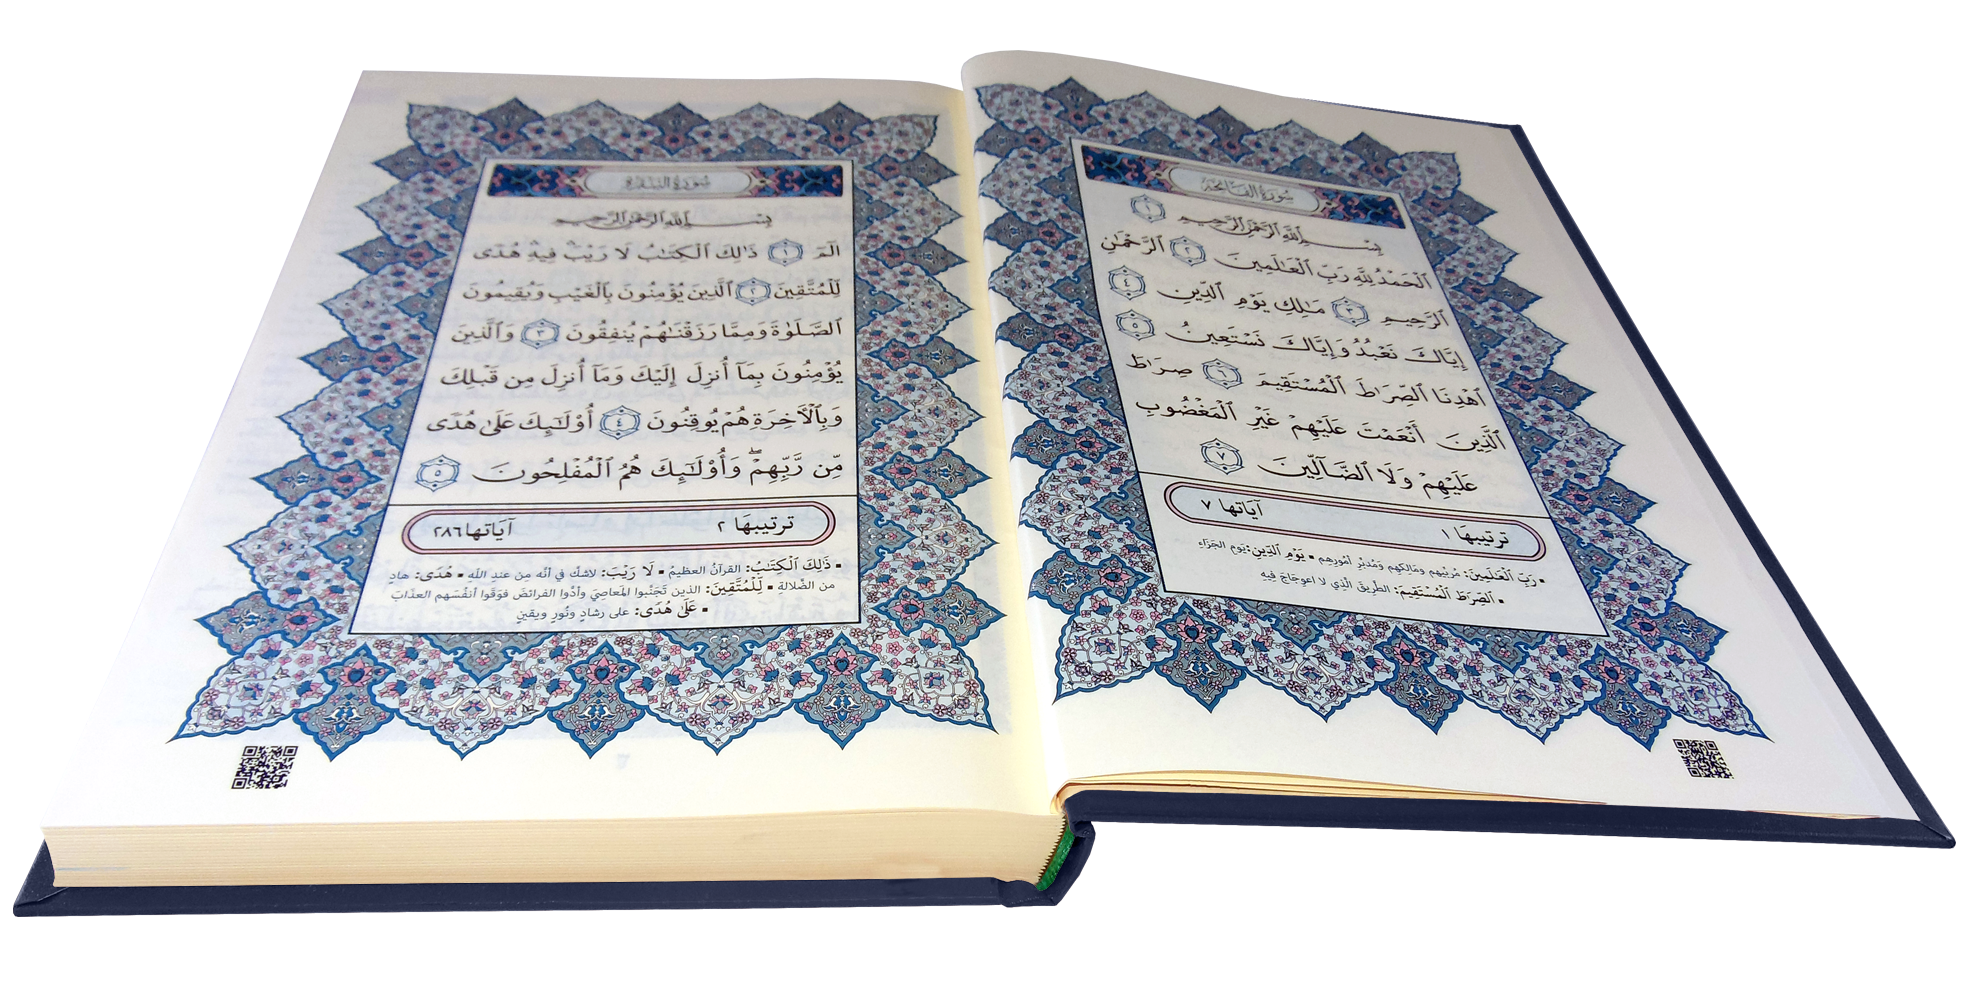 سُورَةُ الفَاتِحَةِ
بِسْمِ ٱللَّهِ ٱلرَّحْمَٰنِ ٱلرَّحِيمِ ١
ٱلْحَمْدُ لِلَّهِ رَبِّ ٱلْعَٰلَمِينَ ٢ ٱلرَّحْمَٰنِ
ٱلرَّحِيمِ ٣ مَٰلِكِ يَوْمِ ٱلدِّينِ ٤
إِيَّاكَ نَعْبُدُ وَإِيَّاكَ نَسْتَعِينُ ٥
ٱهْدِنَا ٱلصِّرَٰطَ ٱلْمُسْتَقِيمَ ٦ صِرَٰطَ
ٱلَّذِينَ أَنْعَمْتَ عَلَيْهِمْ غَيْرِ ٱلْمَغْضُوبِ
عَلَيْهِمْ وَلَا ٱلضَّآلِّينَ ٧
ترتيبهَا ١ آيَاتها ٧
▪ رَبِّ ٱلْعَٰلَمِينَ: مُرَبِّيهِم ومَالِكِهِم وَمُدَبِّرِ أمُورِهِم ▪ يَوْمِ ٱلدِّينِ: يَومِ الجَزَاءِ
▪ ٱلصِّرَٰطَ ٱلْمُسْتَقِيمَ: الطَّرِيقَ الَّذِي لا اعوِجَاجَ فِيهِ
سُورَةُ البَقَرَةِ
بِسْمِ ٱللَّهِ ٱلرَّحْمَٰنِ ٱلرَّحِيمِ
الٓمٓ ١ ذَٰلِكَ ٱلْكِتَٰبُ لَا رَيْبَۛ فِيهِۛ هُدًى
لِّلْمُتَّقِينَ ٢ ٱلَّذِينَ يُؤْمِنُونَ بِٱلْغَيْبِ وَيُقِيمُونَ
ٱلصَّلَوٰةَ وَمِمَّا رَزَقْنَٰهُمْ يُنفِقُونَ ٣ وَٱلَّذِينَ
يُؤْمِنُونَ بِمَآ أُنزِلَ إِلَيْكَ وَمَآ أُنزِلَ مِن قَبْلِكَ
وَبِٱلْأَخِرَةِ هُمْ يُوقِنُونَ ٤ أُوْلَٰٓئِكَ عَلَىٰ هُدًى
مِّن رَّبِّهِمْۖ وَأُوْلَٰٓئِكَ هُمُ ٱلْمُفْلِحُونَ ٥
ترتيبهَا ٢ آيَاتها ٢٨٦
▪ ذَٰلِكَ ٱلْكِتَٰبُ: القرآنُ العظيمُ ▪ لَا رَيْبَ: لاشكَّ في أنَّه مِن عندِ اللَّهِ ▪ هُدًى: هادٍ
من الضَّلالةِ ▪ لِّلْمُتَّقِينَ: الذين تَجَنَّبوا المَعاصِيَ وأدَّوا الفرائضَ فوَقَوا أنفُسَهم العذابَ
▪ عَلَىٰ هُدًى: على رشادٍ ونُورٍ ويقينٍ